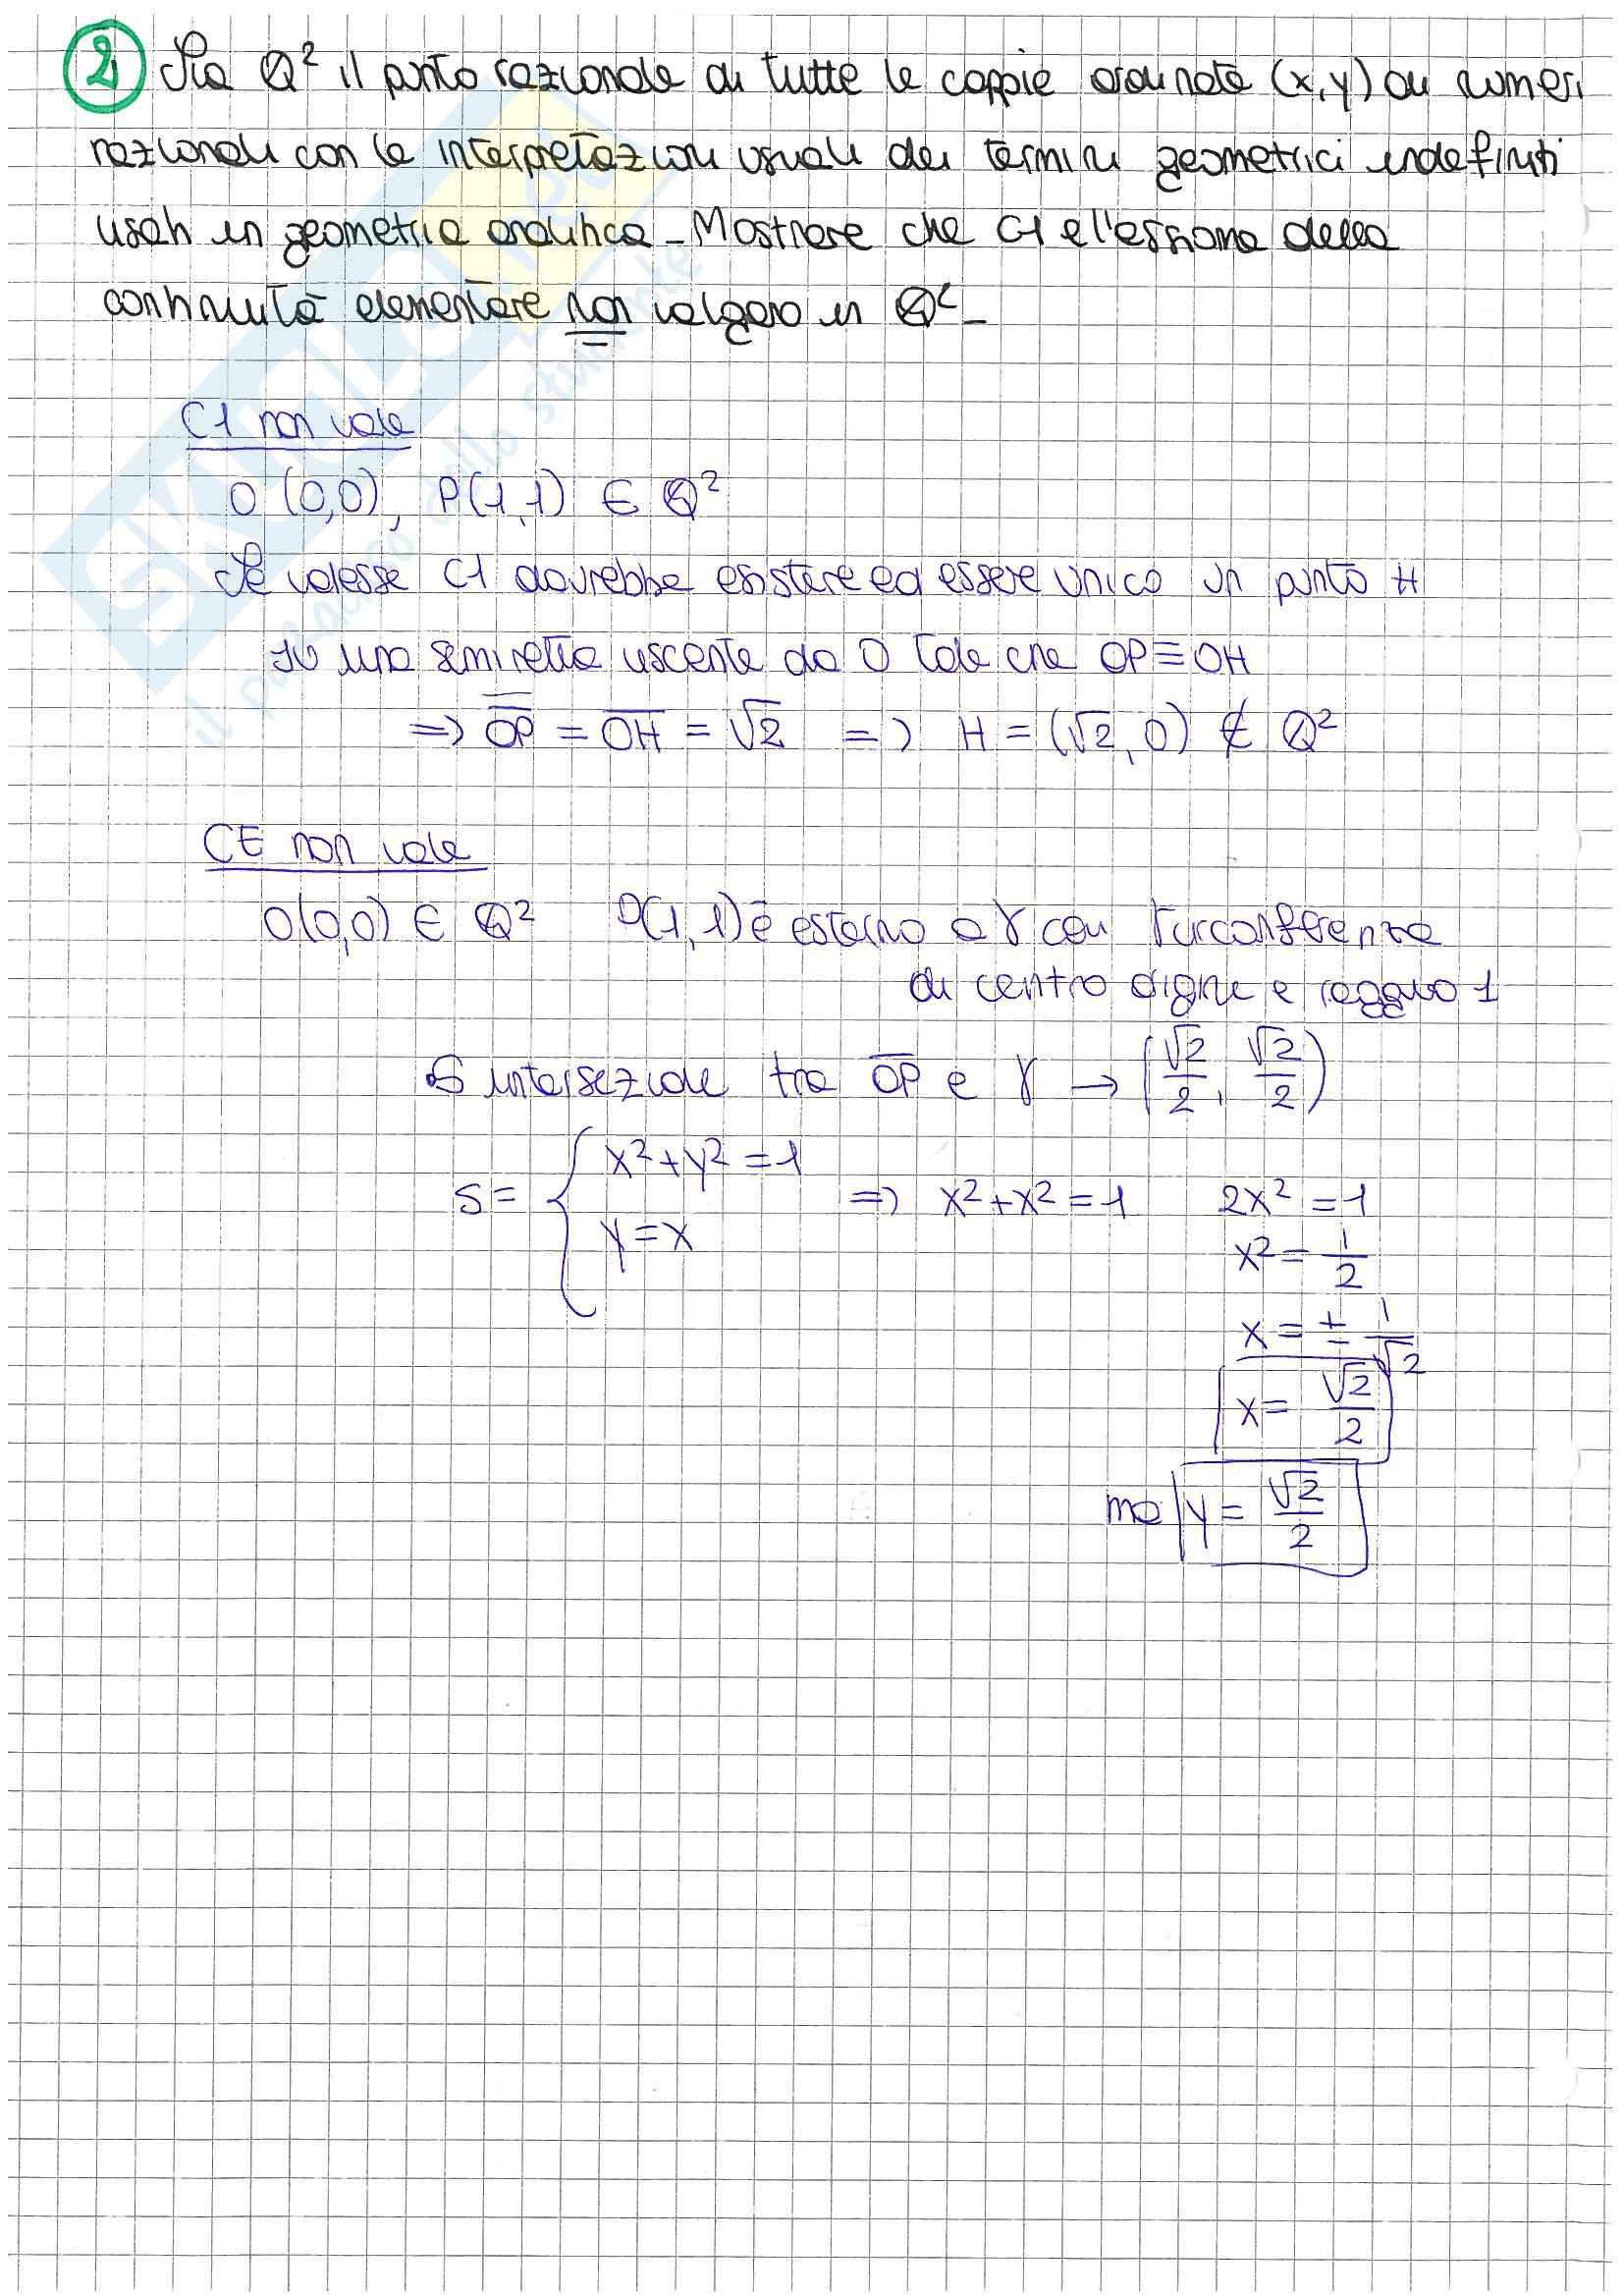 2) Sia Q² il punto razionale di tutte le coppie ordinate (x,y) di numeri
razionali con le interpretazioni usuali dei termini geometrici indefiniti
usati in geometria analitica - Mostrare che C1 e l'assioma della
continuità elementare non valgano in Q² -
C1 non vale
O(0,0), P(1,1) ∈ Q²
Se valesse C1 dovrebbe esistere ed essere unico un punto H
su una semiretta uscente da O tale che OP≡OH
=> OP = OH = √2 => H = (√2,0) ∉ Q²
CE non vale
O(0,0) ∈ Q² P(1,1) è esterno a γ con γ circonferenza
di centro origine e raggio 1
S intersezione tra OP e γ → (√2/2, √2/2)
S = { x²+y²=1
y=x => x²+x²=1 2x²=1
x²=1/2
x=±1/√2
x=√2/2
ma y=√2/2
SKUOLA.net
il paradiso dello studente